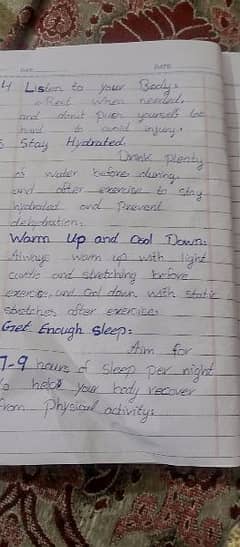 DATE
4 Listen to your Body:
Rest when needed,
and don't push yourself too
hard to avoid injury.
5 Stay Hydrated.
Drink plenty
of water before during,
and after exercise to stay
hydrated and prevent
dehydration.
Warm Up and Cool Down:
Always warm up with light
cardio and stretching before
exercise, and cool down with static
stretches after exercise.
Get Enough Sleep:
Aim for
7-9 hours of sleep per night
to help your body recover
from physical activity.